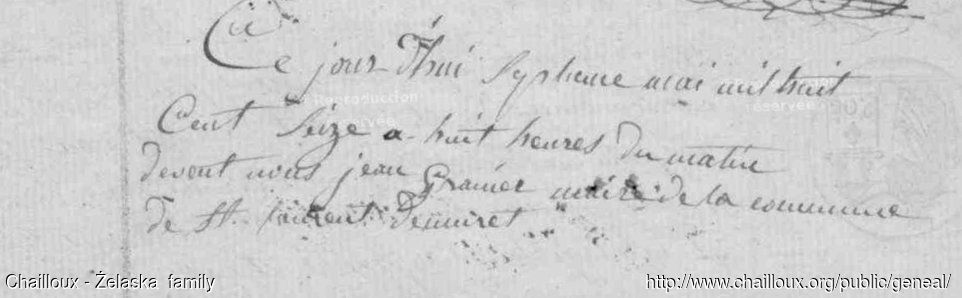 Ce jour d'hui Syptieme mai mil huit
Cent Seize a huit heures du matin
devent nous jean Granier maire de la commune
de St. laurent Deniuret
Reproduction
réservée
Chailloux - Żelaska family
http://www.chailloux.org/public/geneal/